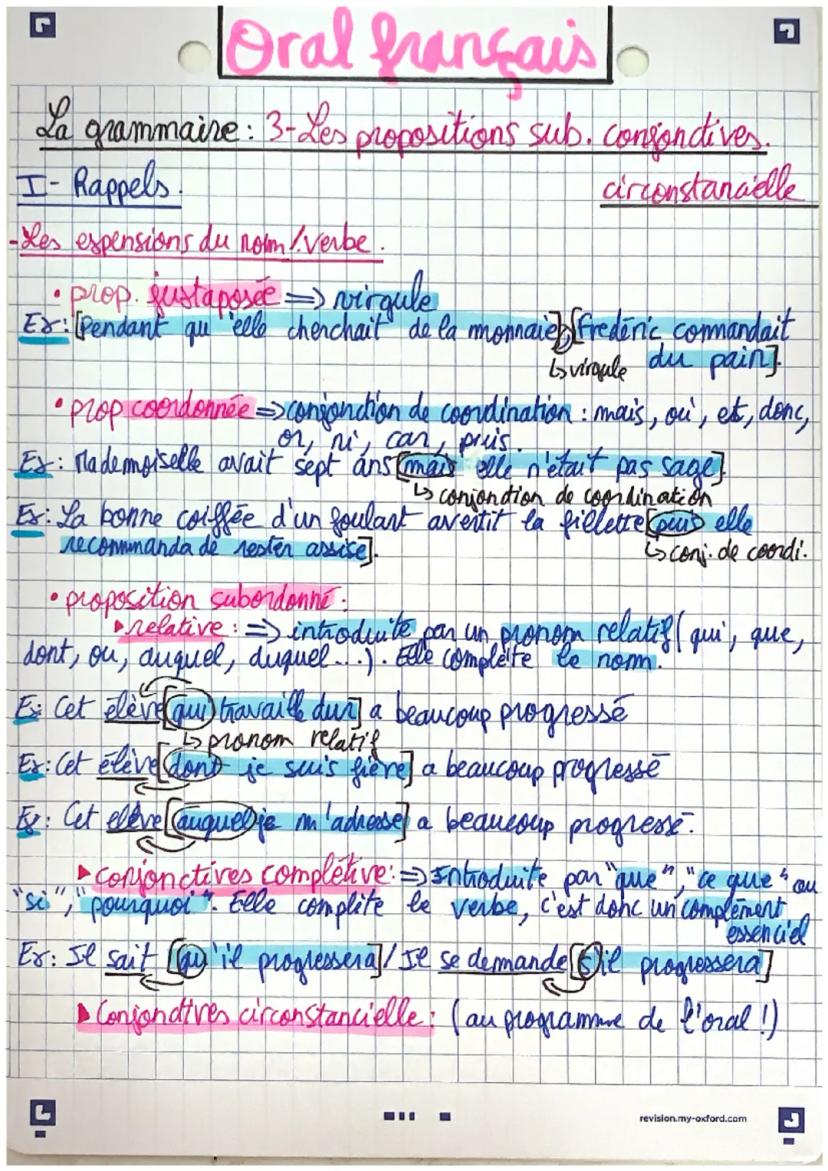 Oral français
La grammaire : 3-Les propositions sub. conjonctives.
circonstancielle
I- Rappels.
-Les expensions du nom/verbe.
• prop. justaposée => virgule
Ex: [Pendant qu'elle cherchait de la monnaie], [Frédéric commandait
↳ virgule du pain].
• prop coordonnée => conjonction de coordination : mais, où, et, donc,
or, ni, car, puis.
Ex: Mademoiselle avait sept ans [mais elle n'était pas sage].
↳ conjonction de coordination
Ex: La bonne coiffée d'un foulant avertit la fillette [puis elle
recommanda de rester assise].
↳ conj. de coordi.
• proposition subordonné :
▸ relative : => introduite par un pronom relatif (qui, que,
dont, ou, auquel, duquel...). Elle complète le nom.
Ex: Cet élève [qui travaille dur] a beaucoup progressé
↳ pronom relatif
Ex: Cet élève [dont je suis fière] a beaucoup progressé
Ex: Cet elève [auquel je m'adresse] a beaucoup progressé.
▸ conjonctives complétive : => Introduite par "que", "ce que" ou
"si", "pourquoi". Elle complète le verbe, c'est donc un complément
essenciel
Ex: Il sait [qu'il progressera] / Il se demande [s'il progressera]
▸ Conjonctives circonstancielle : (au programme de l'oral !)
revision.my-oxford.com